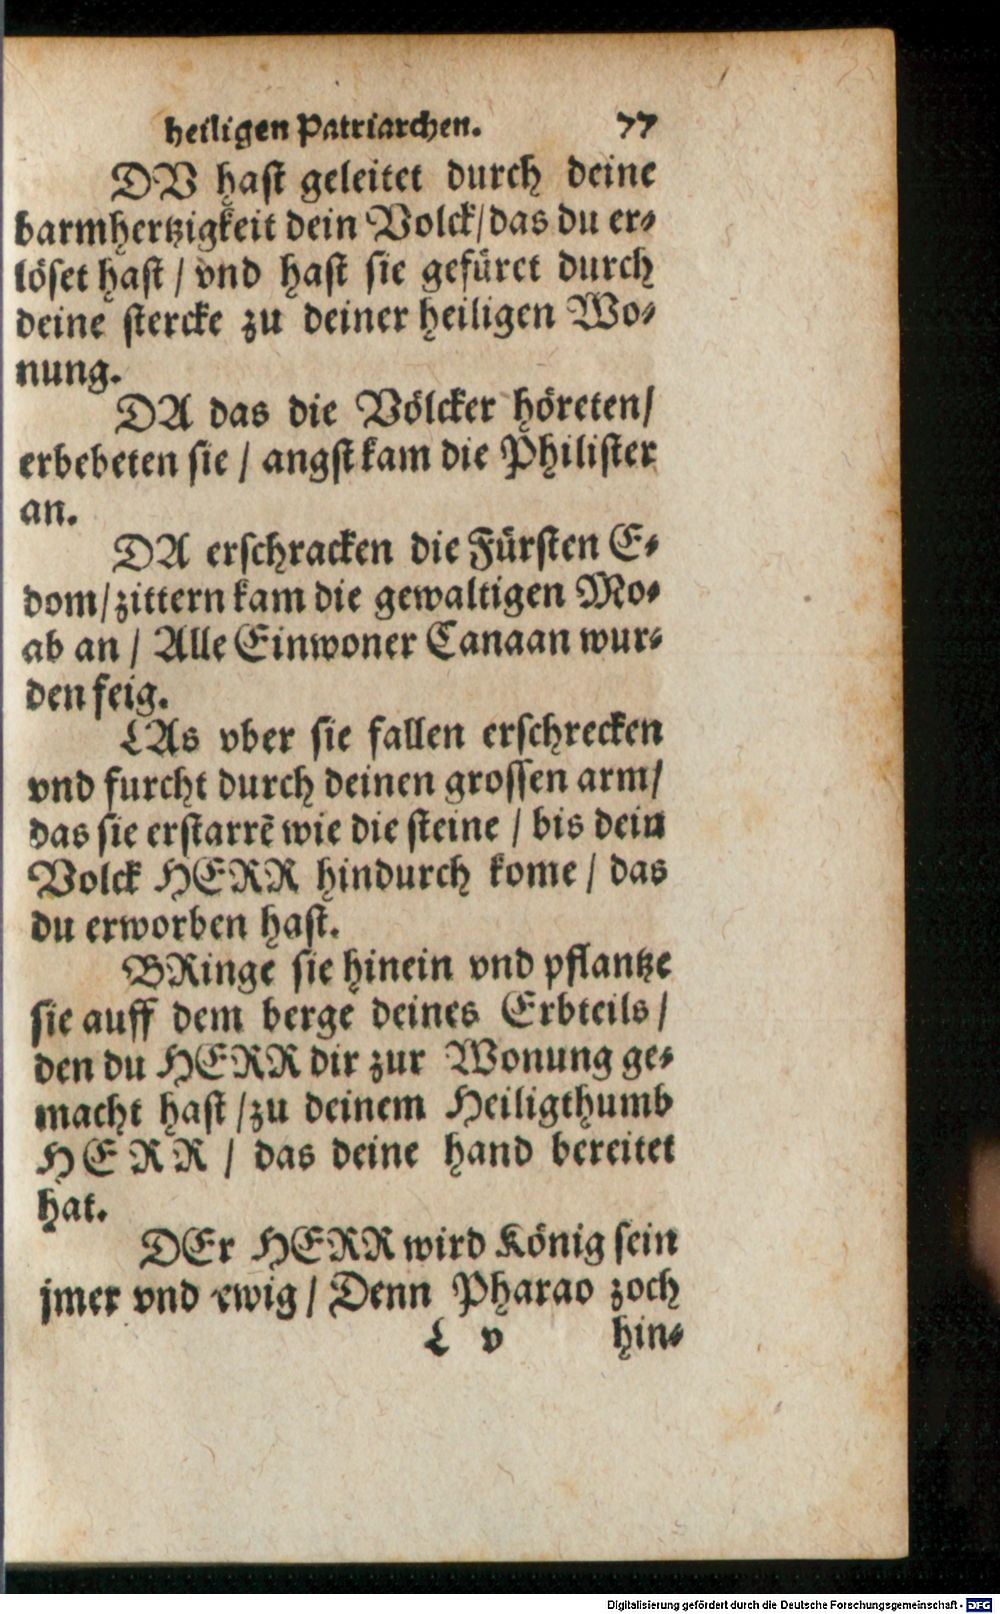 heiligen Patriarchen. 77
DV hast geleitet durch deine
barmhertzigkeit dein Volck/das du er-
löset hast / vnd hast sie gefüret durch
deine stercke zu deiner heiligen Wo-
nung.
DA das die Völcker höreten/
erbebeten sie / angst kam die Philister
an.
DA erschracken die Fürsten E-
dom/zittern kam die gewaltigen Mo-
ab an / Alle Einwoner Canaan wur-
den feig.
LAs vber sie fallen erschrecken
vnd furcht durch deinen grossen arm/
das sie erstarrē wie die steine / bis dein
Volck HERR hindurch kome / das
du erworben hast.
BRinge sie hinein vnd pflantze
sie auff dem berge deines Erbteils /
den du HERR dir zur Wonung ge-
macht hast /zu deinem Heiligthumb
HERR / das deine hand bereitet
hat.
DEr HERR wird König sein
jmer vnd ewig / Denn Pharao zoch
L v hin-
Digitalisierung gefördert durch die Deutsche Forschungsgemeinschaft - DFG